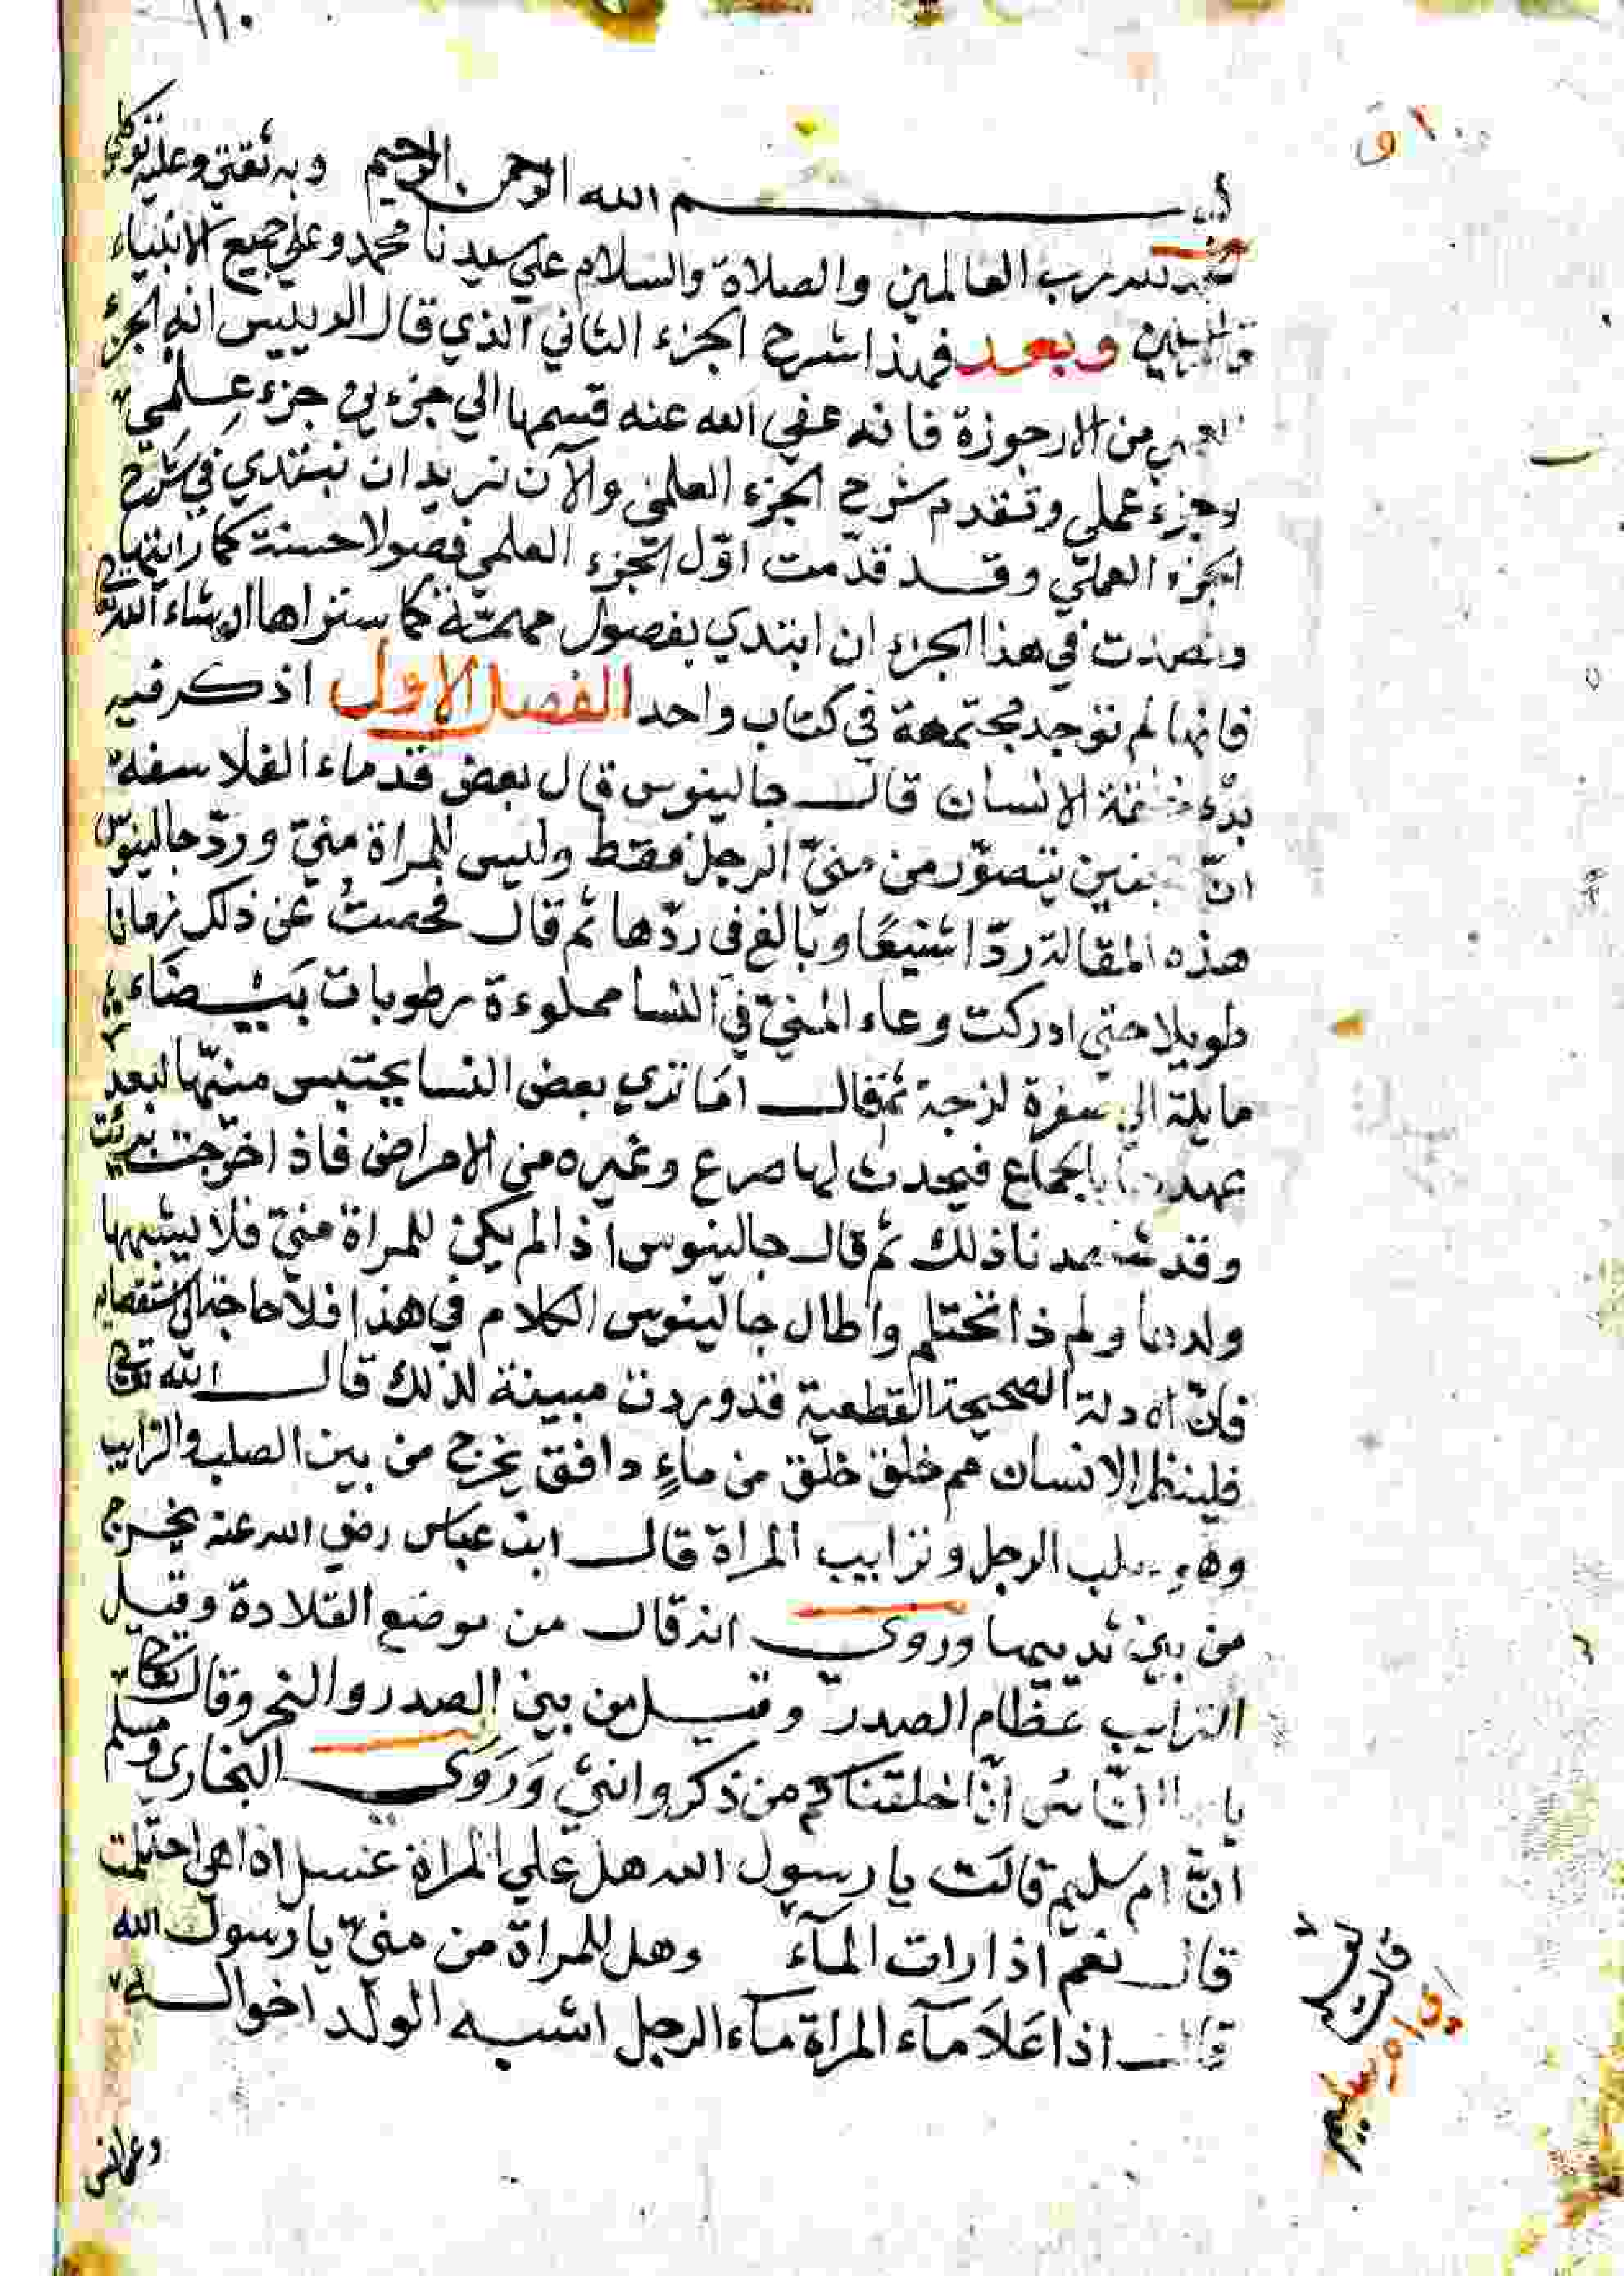 ١١٠
بسم الله الرحمن الرحيم وبه ثقتي وعليه توكلي
الحمد لله رب العالمين والصلاة والسلام علي سيدنا محمد وعلي جميع الانبياء
وبعد فهذا شرح الجزء الثاني الذي قال الرييس انه الجزء
من الارجوزة فانه عفي الله عنه قسمها الي جزءين جزء علمي
وجزء عملي وتقدم شرح الجزء العلمي والآن نريد ان نبتدي في شرح
الجزء العملي وقد قدمت اوّل الجزء العلمي فصولا حسنة كما رايتها
وقصدت في هذا الجزء ان ابتدي بفصول مهمّة كما ستراها ان شاء الله تعالي
فانها لم توجد مجتمعة في كتاب واحد الفصل الاول اذكر فيه
بدء خلقة الانسان قال جالينوس قال بعض قدماء الفلاسفة
انّ الجنين يتصوّر من منيّ الرجل فقط وليس للمراة منيّ وردّ جالينوس
هذه المقالة ردّا شنيعًا وبالغ في ردّها ثم قال فحصتُ عن ذلك زمانا
طويلا حتي ادركت وعاء المنيّ في النسا مملوءة رطوبات بيضاء
مايلة الي صفرة لزجة ثم قال اما تري بعض النسا يحتبس منيّها لبعد
عهدها بالجماع فيحدث لها صرع وغيره من الامراض فاذا خرجت برئت
وقد شهدنا ذلك ثم قال جالينوس اذا لم يكن للمراة منيّ فلا يشبهها
ولدها ولم ذا تحتلم واطال جالينوس الكلام في هذا فلا حاجة الي استقصايه
فانّ الادلة الصحيحة القطعية قد وردت مبينة لذلك قال الله تعالي
فلينظر الانسان مم خلق خلق من ماءٍ دافق يخرج من بين الصلب والترايب
وهو صلب الرجل وترايب المراة قال ابن عباس رضي الله عنه يخرج
من بين ثدييها وروي انه قال من موضع القلادة وقيل
الترايب عظام الصدر وقيل من بين الصدر والنحر وقال تعالي
يا ايها الناس انّا خلقناكم من ذكر وانثي وَرَوَي البخاري ومسلم
انّ ام سليم قالت يا رسول الله هل علي المراة غسل اذا هي احتلمت
قال نعم اذا رات المآء وهل للمراة من منيّ يا رسول الله
قال اذا عَلَا مآء المراة مآء الرجل اشبه الولد اخواله
قالت
ام سليم